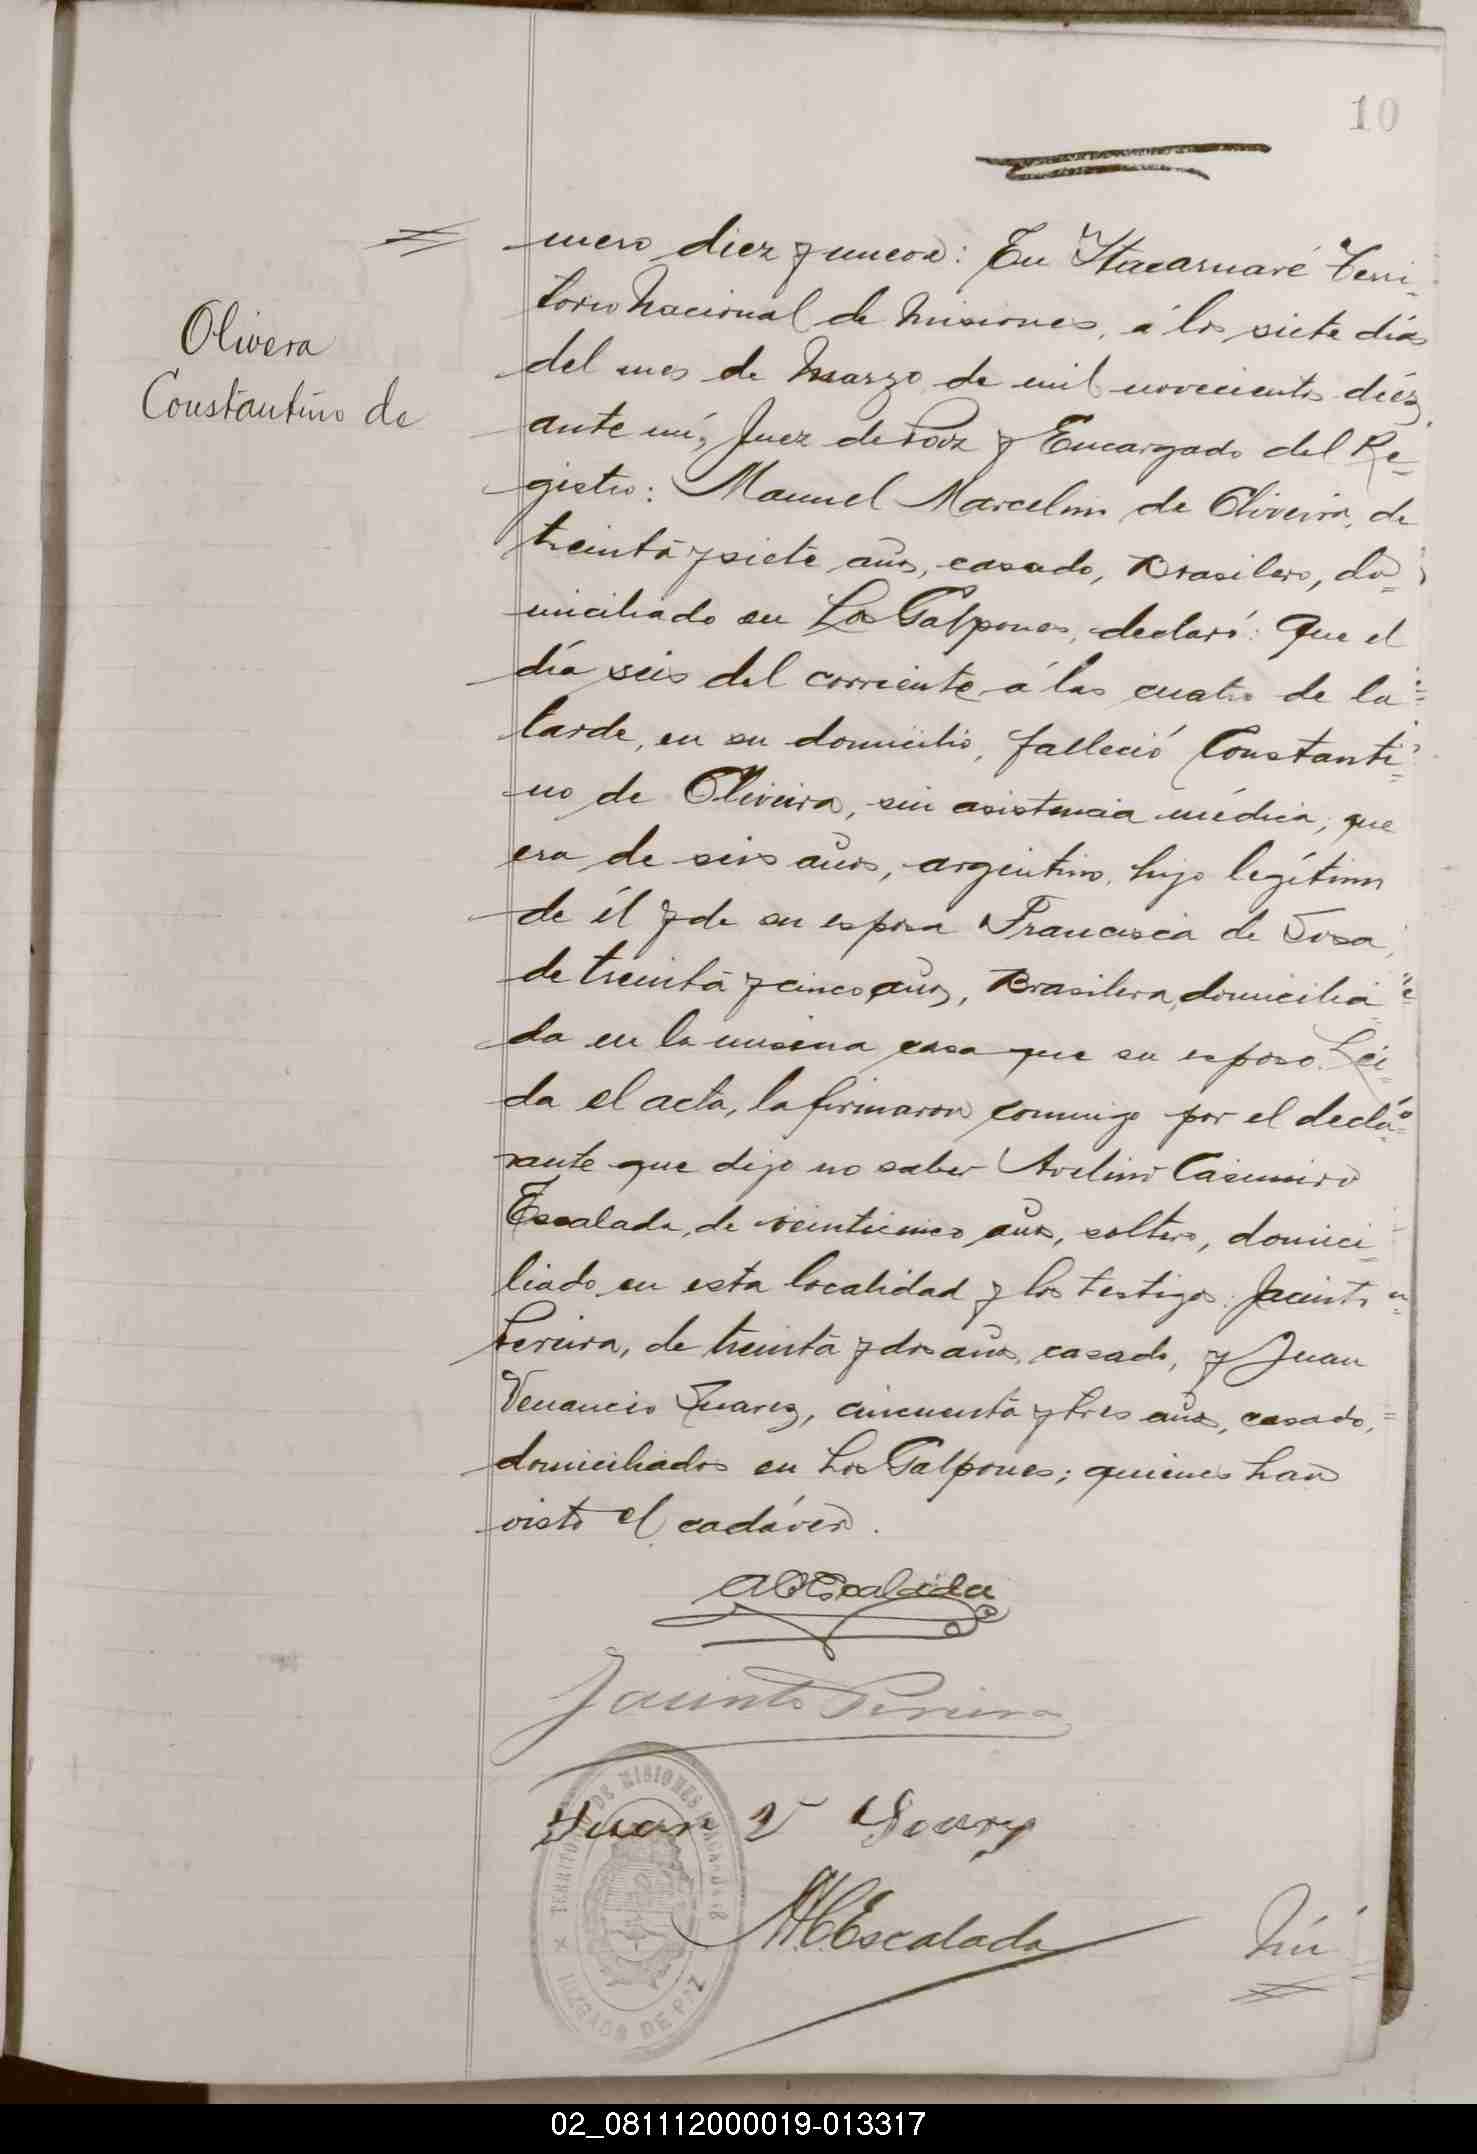 10
Olivera
Constantino de
mero diez y nueve: En Itacaruaré Terri-
torio Nacional de Misiones, á los siete días
del mes de Marzo de mil novecientos diéz,
ante mí, Juez de Paz y Encargado del Re-
gistro: Manuel Marcelino de Oliveira, de
treinta y siete años, casado, Brasilero, do-
miciliado en Los Galpones, declaró: Que el
día seis del corriente á las cuatro de la
tarde, en su domicilio, falleció Constanti-
no de Oliveira, sin asistencia médica, que
era de seis años, argentino, hijo legítimo
de él y de su esposa Francisca de Sosa,
de treinta y cinco años, Brasilera, domicilia-
da en la misma casa que su esposo. Leí-
da el acta, la firmaron conmigo por el decla-
rante que dijo no saber Avelino Casimiro
Escalada, de veinticinco años, soltero, domici-
liado en esta localidad y los testigos: Jacinto
Pereira, de treinta y dos años, casado, y Juan
Venancio Suarez, cincuenta y tres años, casado,
domiciliados en Los Galpones; quienes han
visto el cadáver.
A C Escalada
Jacinto Pereira
Juan V Soarz
TERRITORIO DE MISIONES
JUZGADO DE PAZ
Escalada
Nú
02_081112000019-013317